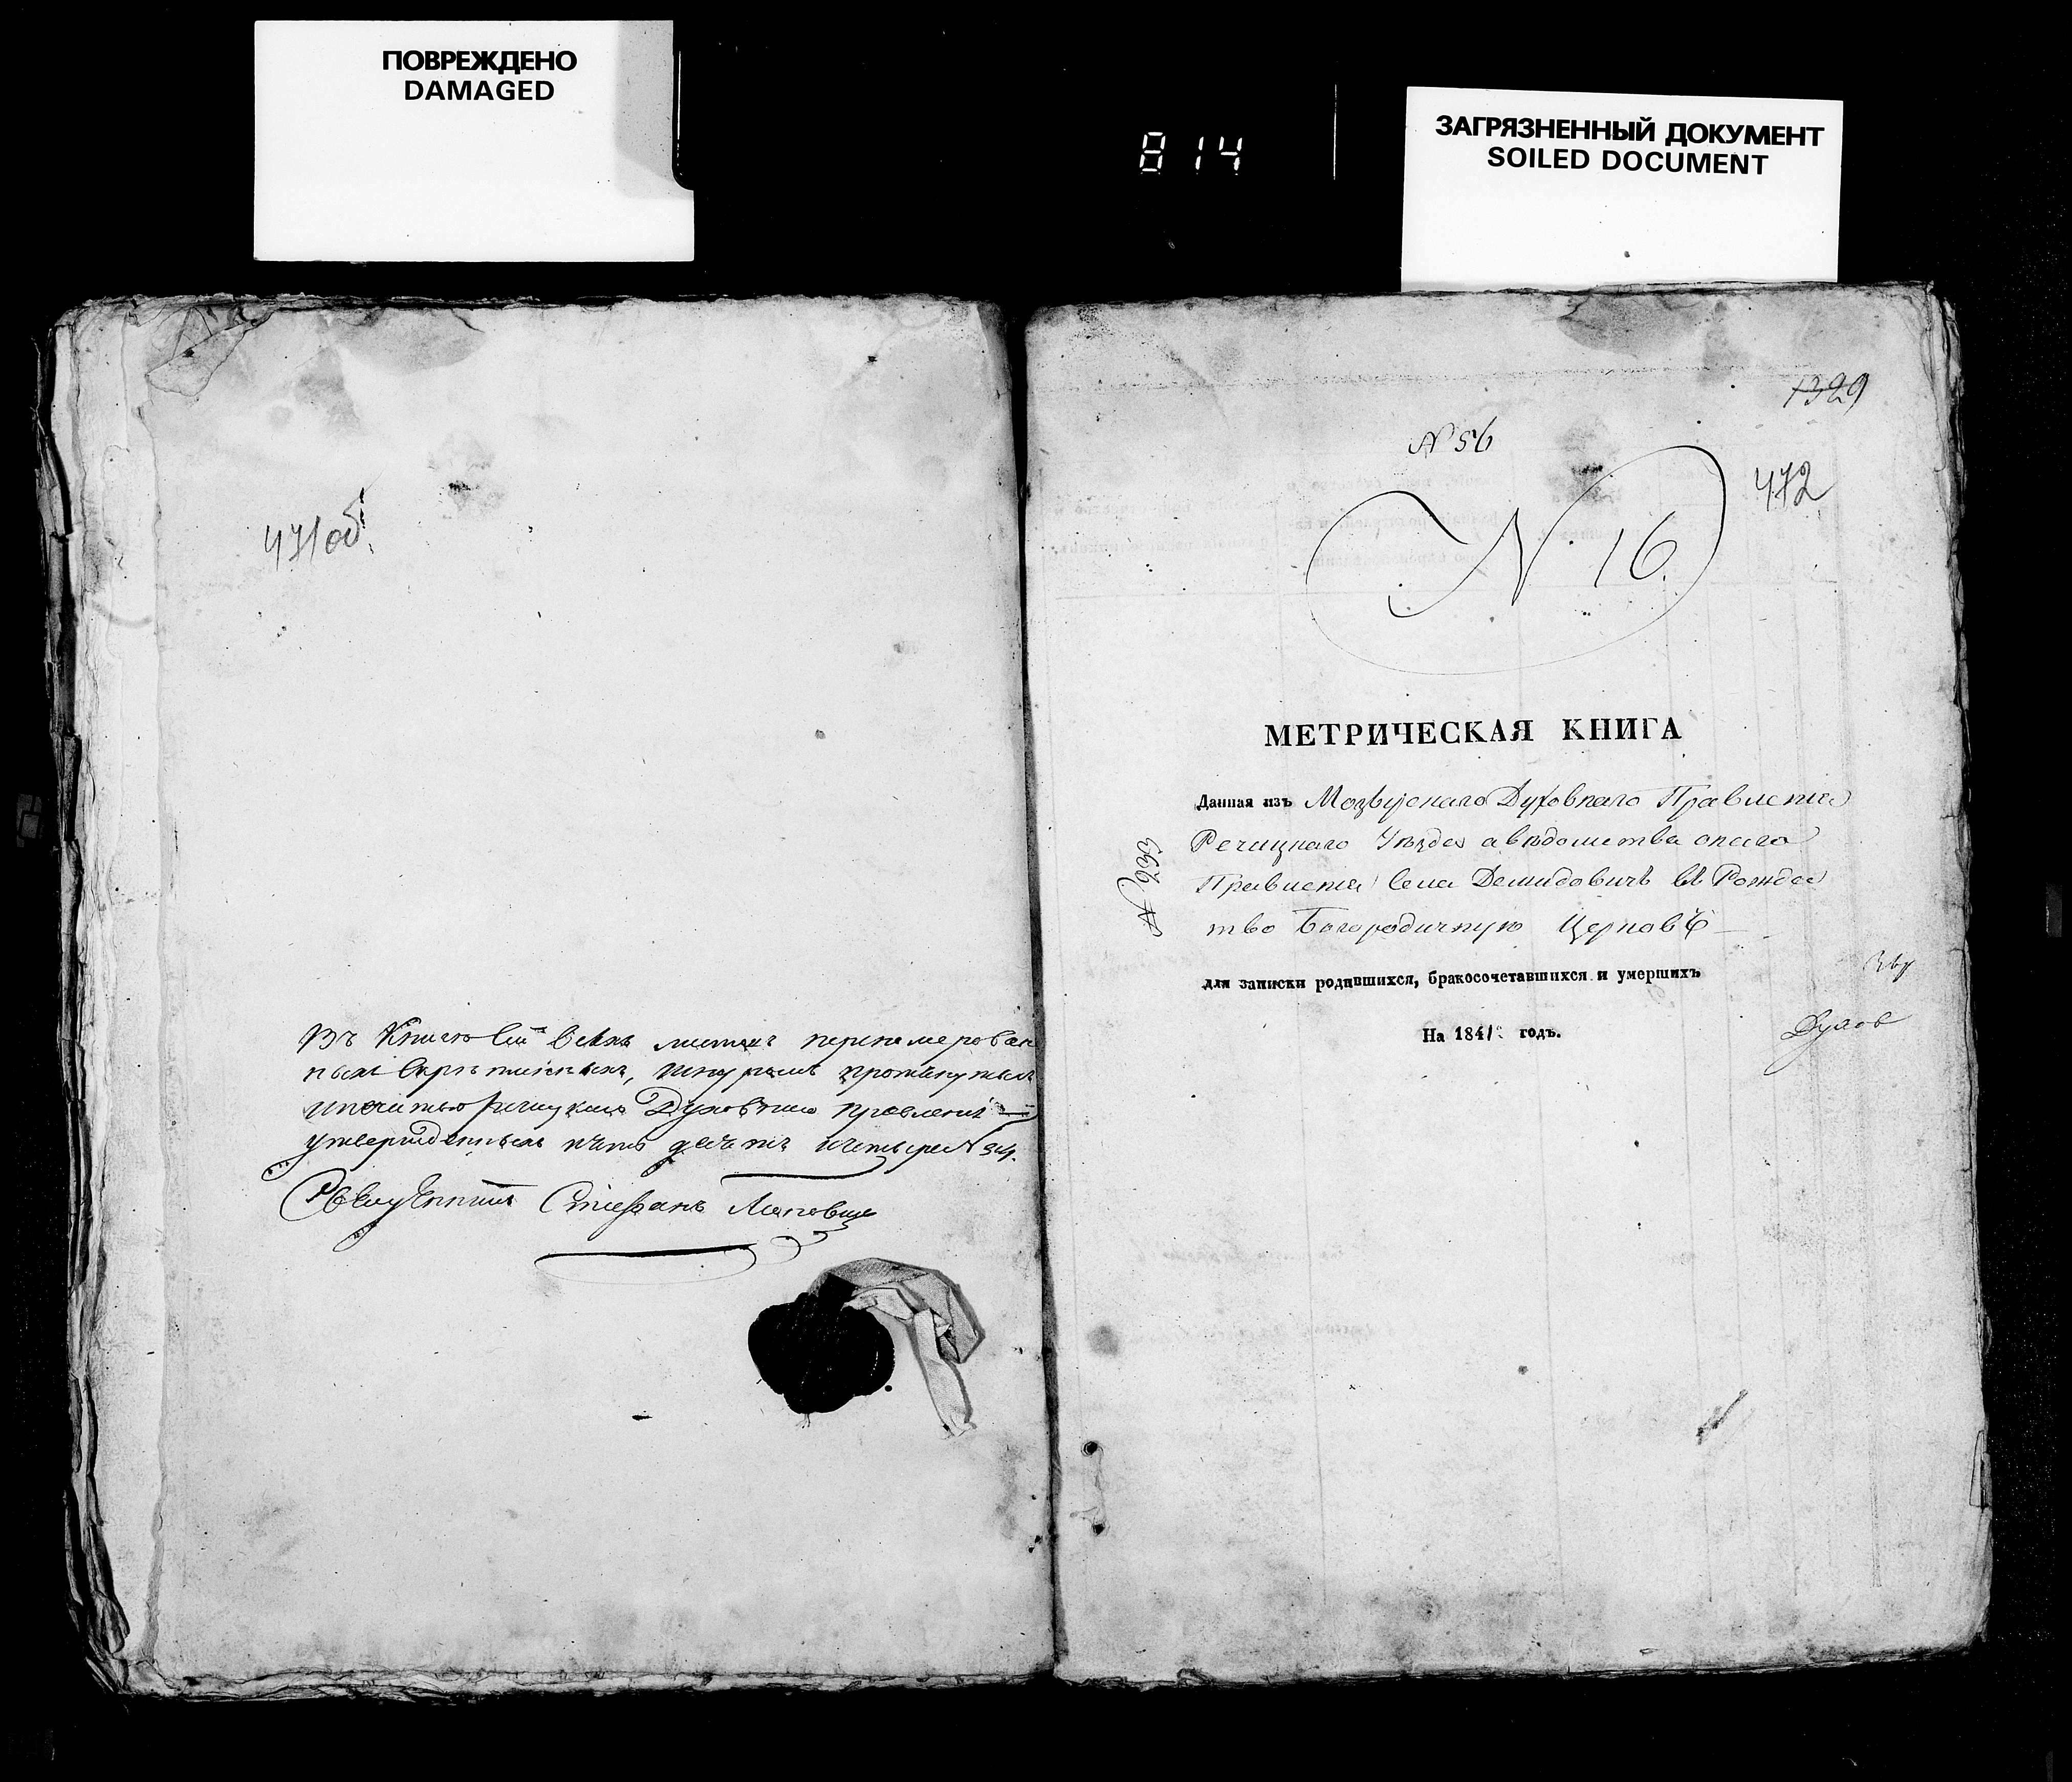 ПОВРЕЖДЕНО
DAMAGED
814
ЗАГРЯЗНЕННЫЙ ДОКУМЕНТ
SOILED DOCUMENT
471об.
Въ Книгѣ сей всѣхъ листовъ перенумерован
ныхъ скрѣпленныхъ, шнуромъ протянутыхъ
и печатью Речицкаго Духовнаго Правленія
утвержденныхъ пять десятъ четыре 54.
Стефанъ
1329
N 56
472
N. 16.
МЕТРИЧЕСКАЯ КНИГА
Данная изъ Мозырскаго Духовнаго Правленія
Речицкаго Уѣзда вѣдомства онаго
Правленія села Демидовичъ въ Рождес
тво Богородичную Церковь
N 933
для записки родившихся, бракосочетавшихся и умершихъ
На 1841 годъ.
Духов